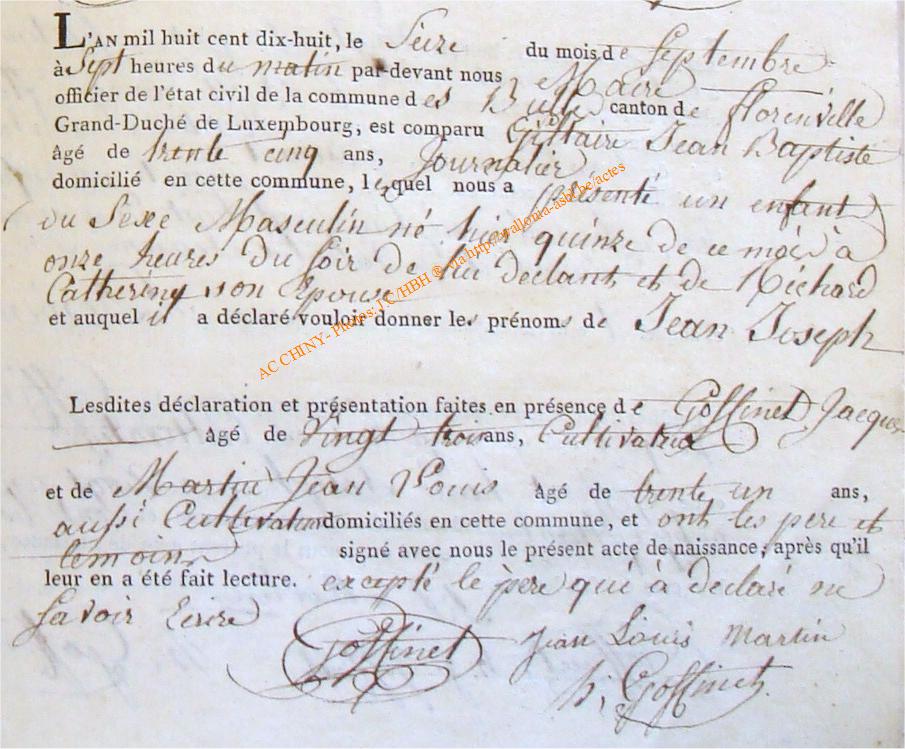 L'AN mil huit cent dix-huit, le Seize du mois de Septembre
à Sept heures du matin par-devant nous Maire
officier de l'état civil de la commune des Bulles canton de florenville
Grand-Duché de Luxembourg, est comparu Gillaire Jean Baptiste
âgé de trente cinq ans, Journalier
domicilié en cette commune, lequel nous a présenté un enfant
du Sexe Masculin né hier quinze de ce mois à
onze heures du soir de lui declant et de Richard
Catherine son Epouse
et auquel il a déclaré vouloir donner les prénoms de Jean Joseph
AC CHINY - Photos: J.C/HBH ® via http://wallonia-asbl.be/actes
Lesdites déclaration et présentation faites en présence de Goffinet Jacques
âgé de Vingt trois ans, Cultivateur
et de Martin Jean Louis âgé de trente un ans,
aussi Cultivateur domiciliés en cette commune, et ont les pere et
temoins signé avec nous le présent acte de naissance, après qu'il
leur en a été fait lecture. excepté le père qui à declaré ne
Savoir Ecrire
Goffinet Jean Louis Martin
Goffinet